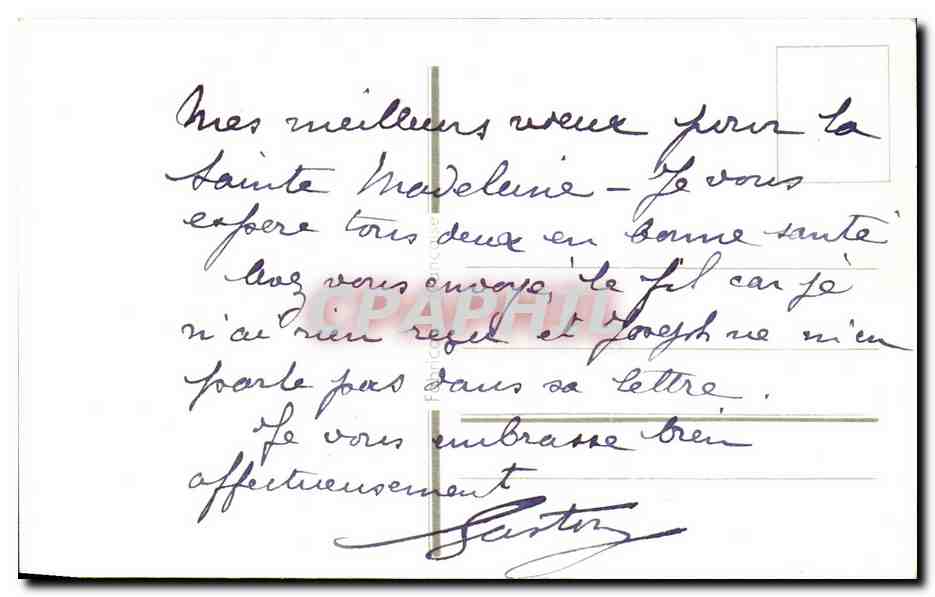 Mes meilleurs vœux pour la
Sainte Madeleine – Je vous
espère tous deux en bonne santé
Avez vous envoyé le fil car je
n'ai rien reçu et Joseph ne m'en
parle pas dans sa lettre.
Je vous embrasse bien
affectueusement
Gaston
CPAPHIL